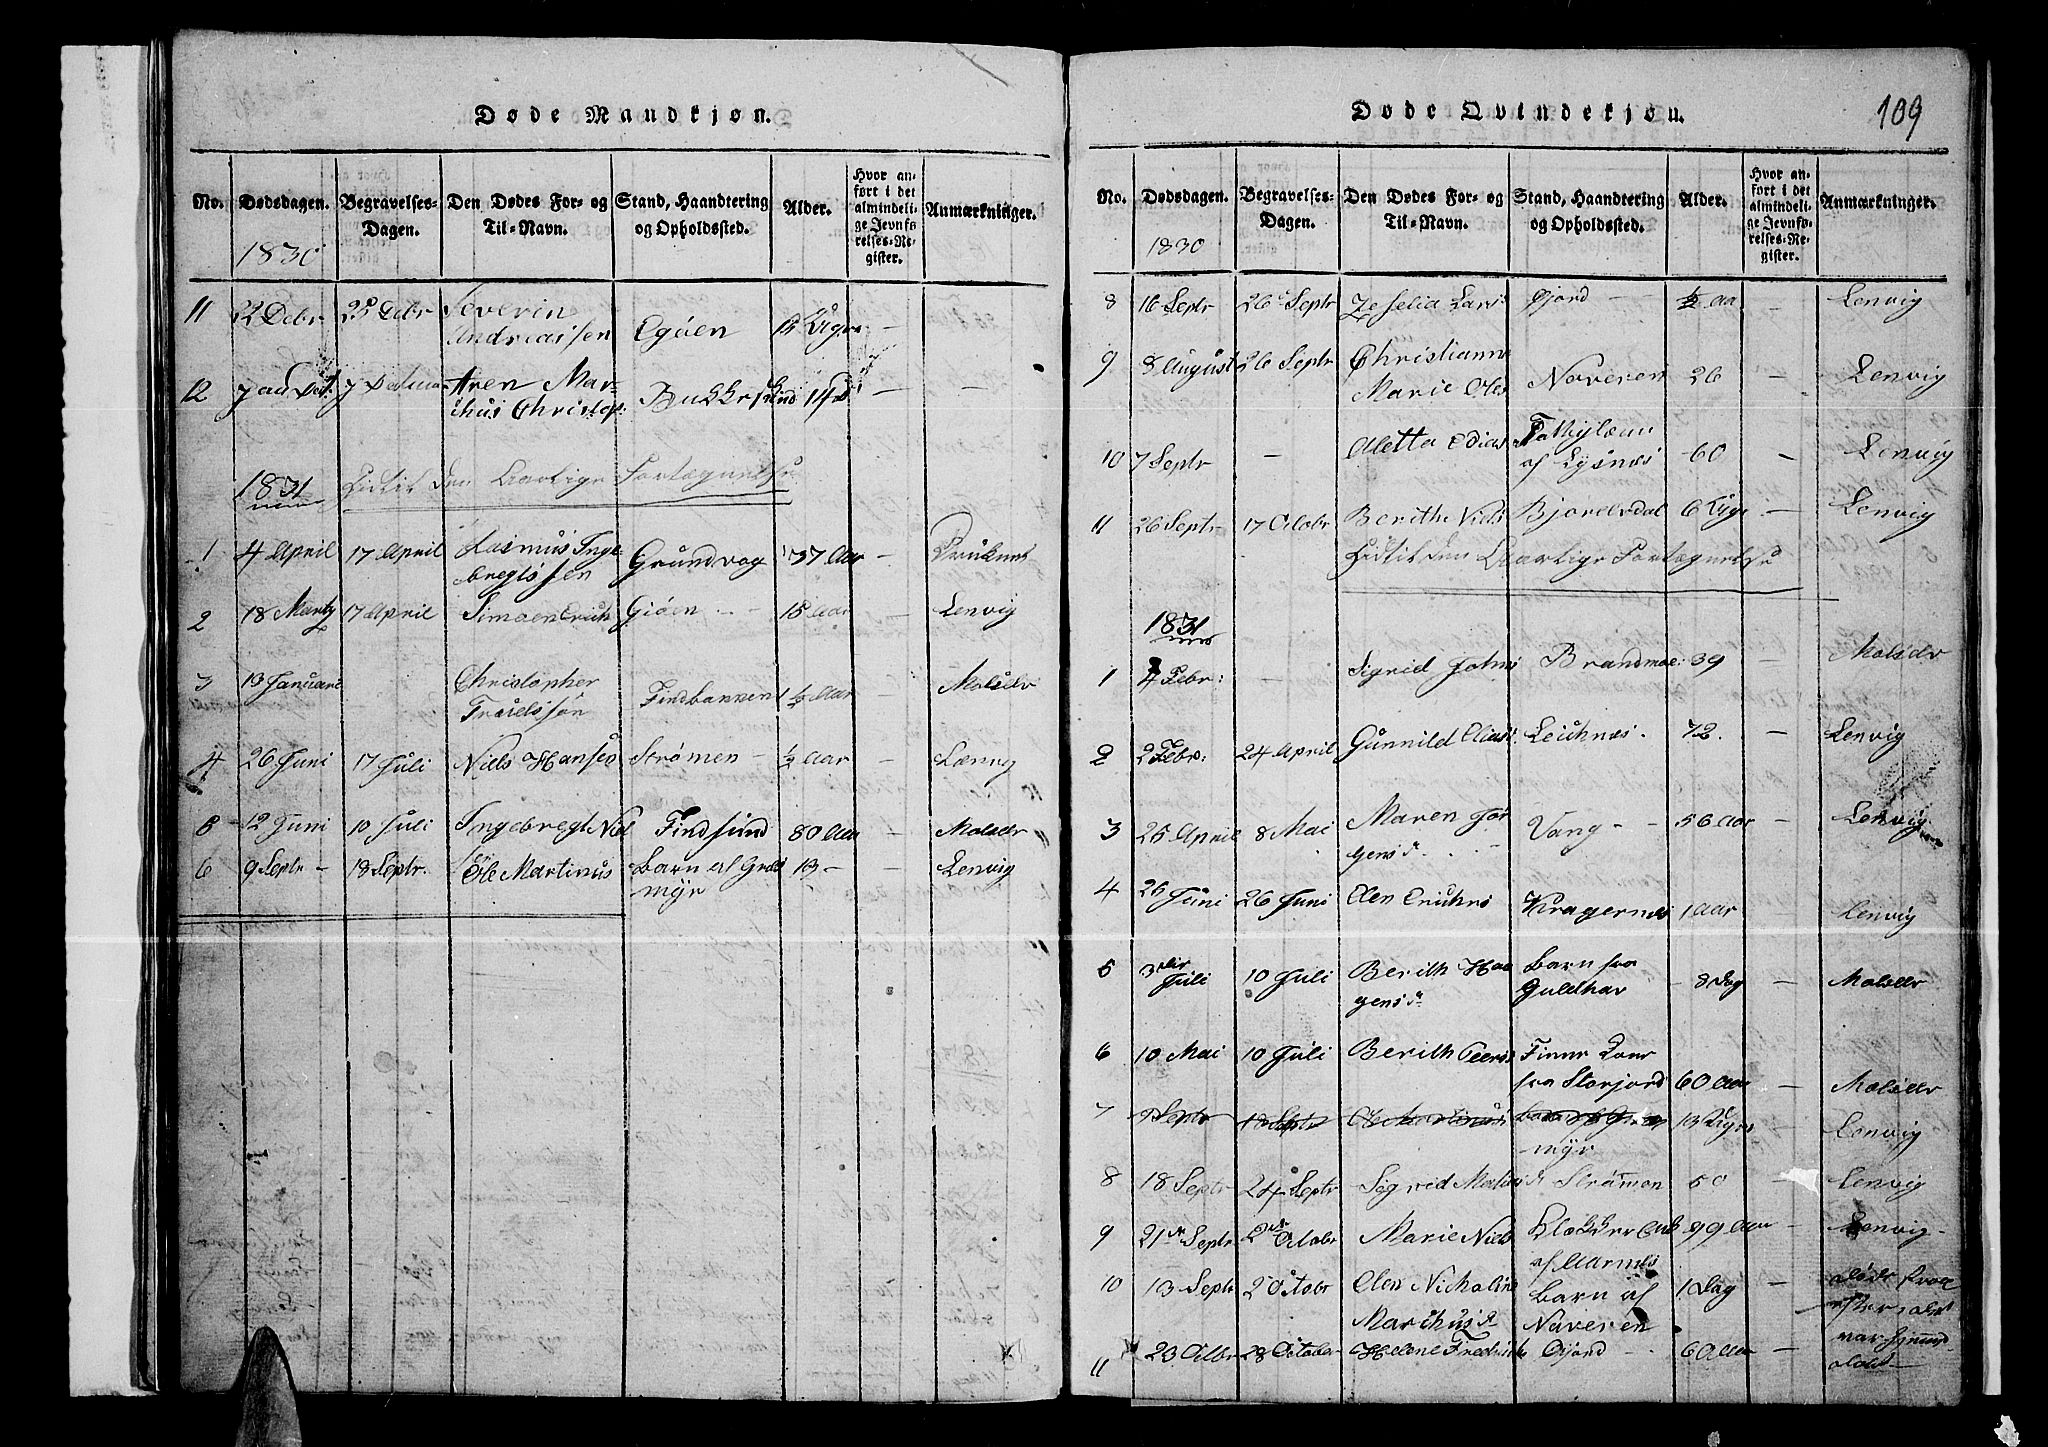 Døde Mandkjøn.
No.
Dødsdagen.
1830
Begravelses-
Dagen.
Den Dødes For- og
Til-Navn.
Stand, Haandtering
og Opholdssted.
Alder.
Hvor an-
ført i det
almindeli-
ge Jevnfø-
relses-Re-
gister.
Anmærkninger.
11 22 Debr 25 Debr Severin
Andreassen Egøen 12 Uger -
12 7 7 Aren Mar-
thus Christop: - -
1831 Lidtil den Aarlige Fortegnelse
1 4 April 17 April Rasmus Inge-
bregtssen Grundvog 37 Aar -
2 18 Martz 17 April Simoen Erich Giøen - 15 Aar - Lenvig
3 13 Januari Christopher
Troelssøn Findbannen 1 1/2 Aar - Malselv
4 26 Juni 17 Juli Niels Hansen Strømen - 1/2 Aar - Lænvig
5 12 Juni 10 Juli Ingebregt Niels Findsund 80 Aar - Malselv
6 9 Septr - 18 Septr. Ole Martinus Barn af Græs
myr 13 - - Lenvig
Døde Qvindekjøn.
109
No.
Dødsdagen.
1830
Begravelses-
Dagen.
Den Dødes For- og
Til-Navn.
Stand, Haandtering
og Opholdssted.
Alder.
Hvor an-
ført i det
almindeli-
ge Jevnfø-
relses-Re-
gister.
Anmærkninger.
8 16 Septr 26 Septr Zeselia Lars Gjord - 1/2 Aa. - Lenvig
9 8 August 26 Septr Christianne
Marie Oles Noveren 26 - Lenvig
10 7 Septr - Aletta Edias
af Lysnæs 60 - Lenvig
11 26 Septr 17 Octobr Berithe Niels Bjorelvdal 6 Uge - Lenvig
Lidtil den Aarlige Fortegnelse
1831
1 4 Febr: - Sigrid Johns Brandmoe: 39 - Malselv
2 2 Febr: 24 April Gunnild Elias Leiknæs. 72. - Lenvig
3 25 April 8 Mai Maren Jør
gens Vang - - 56 Aar - Lenvig
4 25 Juni 26 Juni Elen Erichs Kragernes 1 Aar Lenvig
5 3 Juli 10 Juli Berith Haa
gens Barn fra
Guldhav - 8 Dag - Malselv
6 10 Mai 10 Juli Berith Peers Finne Kone
fra Storjord 60 Aar - Malselv
7 9 Septr 18 Septr Ole Martinus Barn af Græs
myr 13 Uger Lenvig
8 18 Septr 24 Septr Sigrid Mat Strømen 50 - Lenvig
9 21 Septr 2 Octobr Marie Niels Klokker Enk
af Aarnæs 99 Aar - Lenvig -
10 13 Septr 2 Octobr Elen Nicholine
Marthus Barn af
Naveren 1 Dag -
11 23 Octbr 28 October Helene Fredrich Gjord - 6 Aar